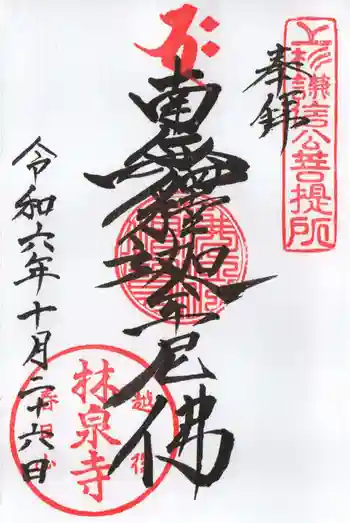 上杉謙信公菩提所
奉拝
南無釋迦牟尼佛
令和六年十月二十六日
越後
林泉寺
春日山